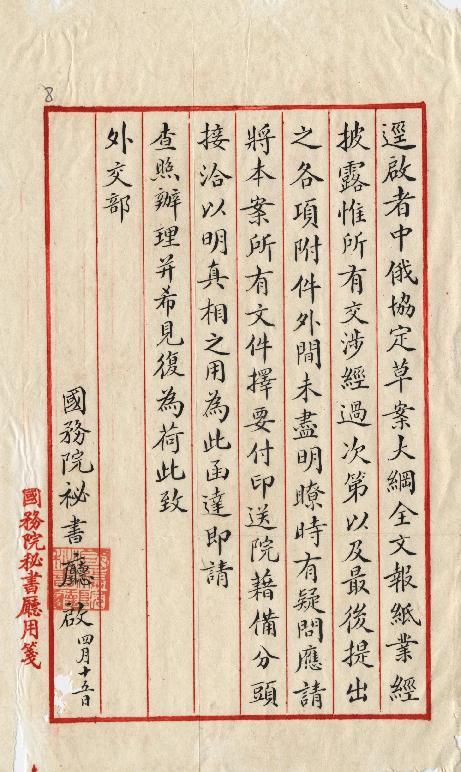 8
逕啟者中俄協定草案大綱全文報紙業經
披露惟所有交涉經過次第以及最後提出
之各項附件外間未盡明瞭時有疑問應請
將本案所有文件擇要付印送院藉備分頭
接洽以明真相之用為此函達即請
查照辦理并希見復為荷此致
外交部
國務院秘書廳啟
四月十五日
國務院秘書廳用箋